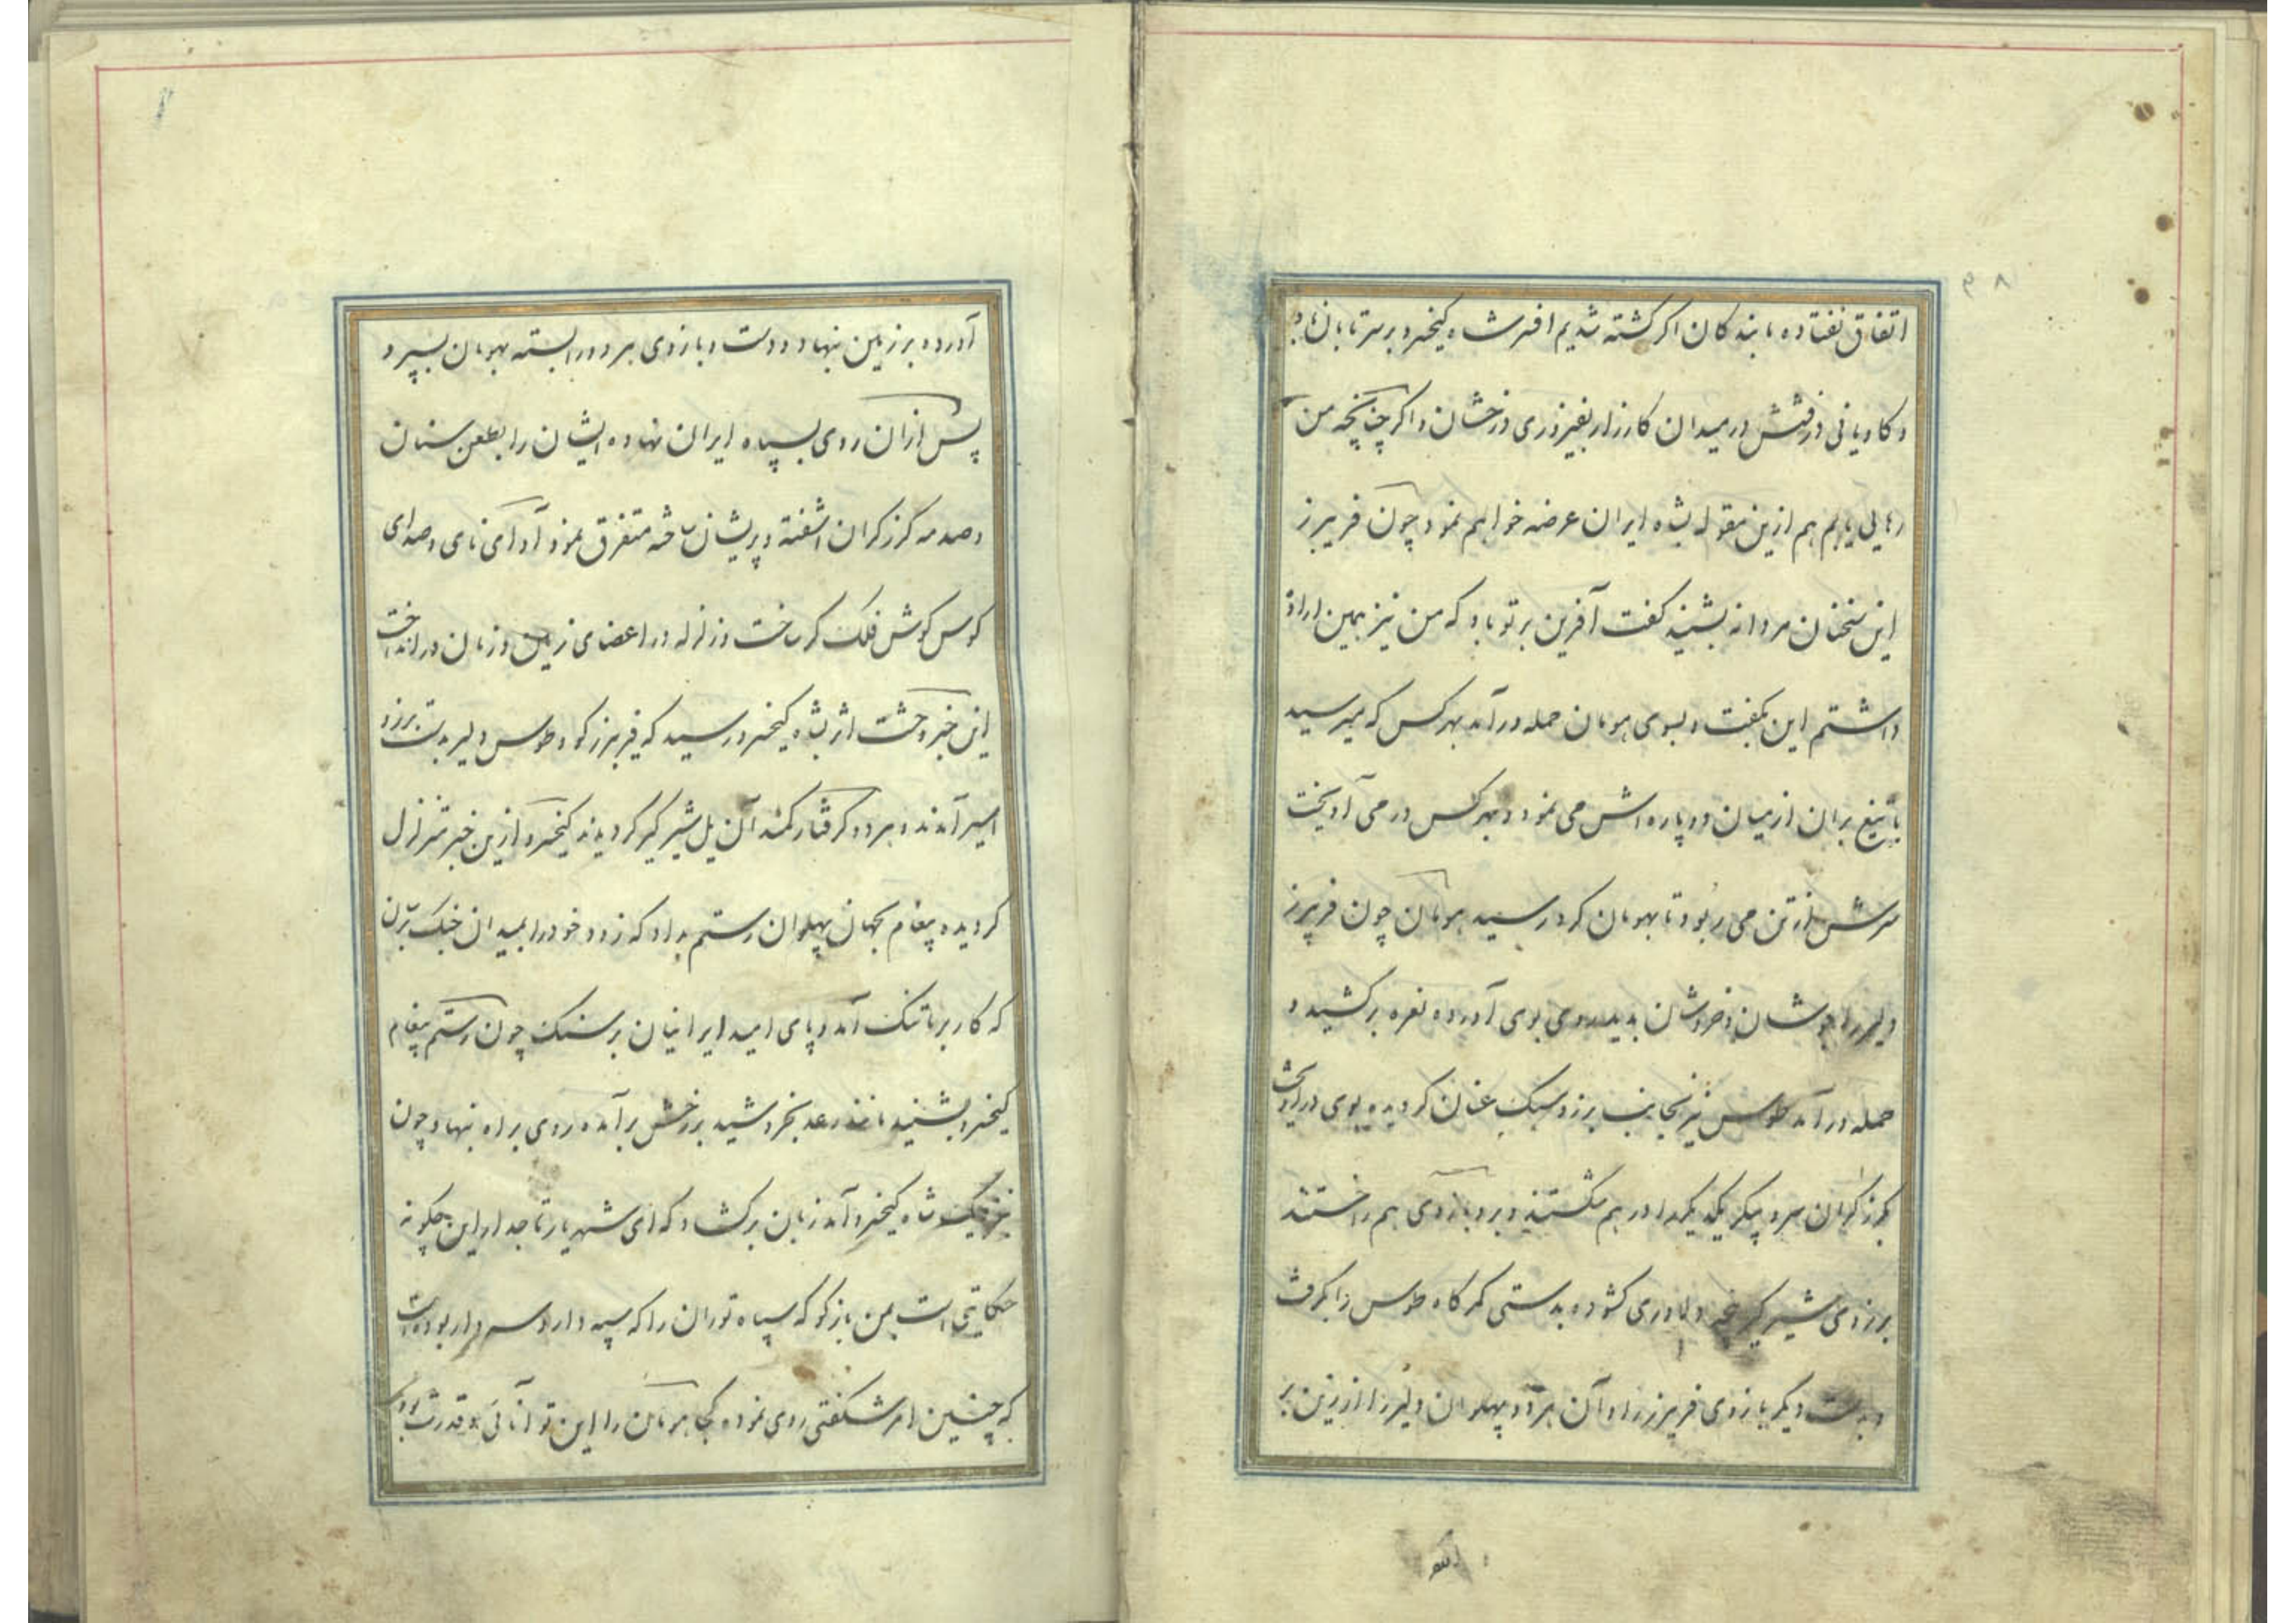 ۹۸
اتفاق نفتاده ما بندگان اگر کشته شدیم افسر شاه کیخسرو بر سر تابان باد
و کاویانی درفشش در میدان کارزار بفیروزی درخشان و اگر چنانچه من
رهایی یابم هم ازین مقوله بشاه ایران عرضه خواهم نمود چون فریبرز
این سخنان مردانه بشنید کفت آفرین بر تو باد که من نیز همین اراده
داشتم این بکفت و بسوی هومان حمله درآمد بهر کس که میرسید
با تیغ بران از میان دو پاره اش می نمود و بهر کس در می آویخت
سرش از تن می ربود تا بهومان کرد رسید هومان چون فریبرز
دلیر را جوشان و خروشان بدید روی بوی آورده نعره برکشید و
حمله درآمد طوس نیز بجانب برزو سبک عنان کردیده بوی درآویخت
بکرز کران سر و پیکر یکدیکر را در هم شکستند و بر و بازوی هم را خستند
برزوی شیرکیر دلاوری کشوده بدستی کمرکاه طوس را بکرفت
و بدست دیکر بازوی فریبرز را و آن هر دو پهلوان دلیر را از زین بر
آورده بر زمین نهاد و دست و بازوی هر دو را بسته بهومان بسپرد
پس از آن روی بسپاه ایران نهاده ایشان را بطعن سنان
و صدمه کرز کران اشفته و پریشان ساخته متفرق نمود آوای نای و صدای
کوس کوش فلک کر ساخت و زلزله در اعضای زمین و زمان در انداخت
این خبر وحشت اثر بشاه کیخسرو رسید که فریبرز کو و طوس دلیر بدست برزو
اسیر آمدند و هر دو کرفتار کمند آن یل شیر کیر کردیدند کیخسرو ازین خبر متزلزل
کردیده پیغام بجهان پهلوان رستم بداد که زود خود را بمیدان جنک برسان
که کار بر ما تنک آمد و پای امید ایرانیان بر سنک چون رستم پیغام
کیخسرو بشنید مانند رعد بخروشید بر رخش برآمده روی براه نهاد و چون
نزدیک شاه کیخسرو آمد زبان برکشاد که ای شهریار تاجدار این چکونه
حکایتی است بمن بازکو که سپاه توران را که سپه دار و سر و دار بوده است
که چنین امر شکفتی روی نموده کجا هومان را این توانائی و قدرت بود